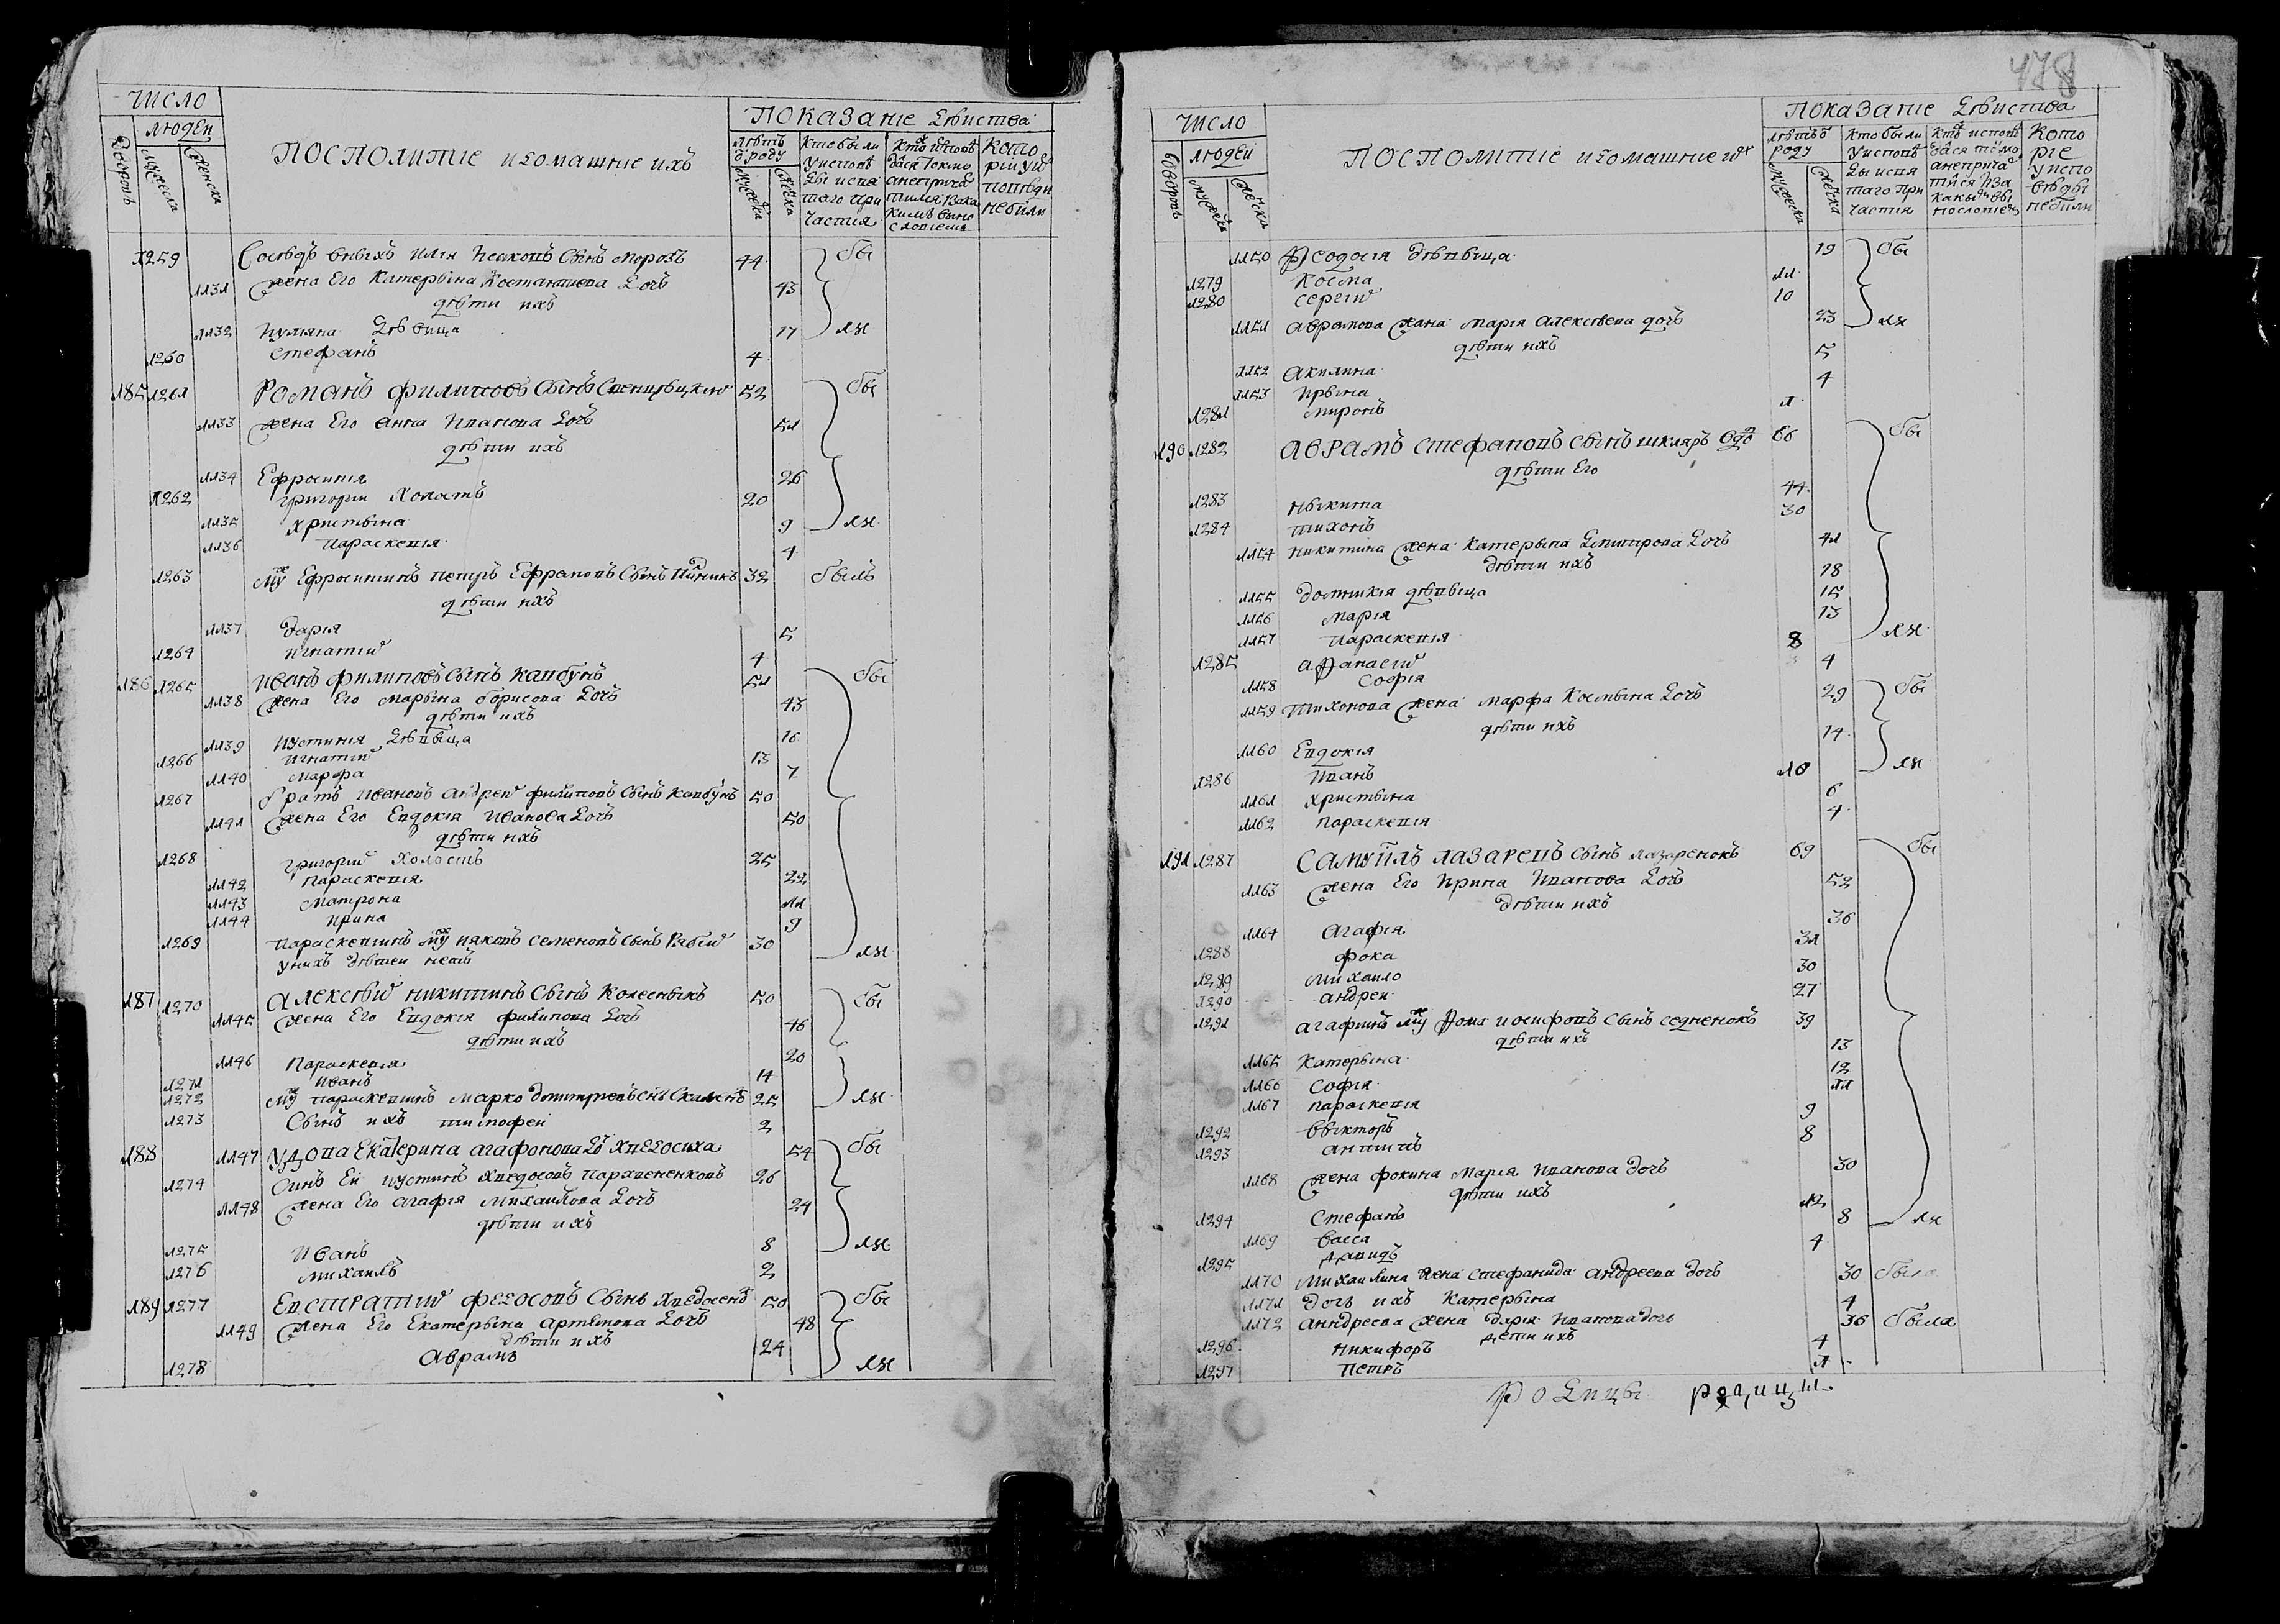 478
Число
Людей
Дворовъ
мужеска
женска
Посполитие и домашние ихъ
Показание действа
лѣтъ
Кто были у исповѣди и святаго причастия
Которіи у исповѣди не были
1259 Сосѣдъ в ныхъ Илия Исаковъ сынъ Морозъ 44 бы
1131 жена Его Катерына Костантиева дочь 43
дѣти ихъ
1132 Иулияна дѣвица 17 ли
1260 Стефанъ 4
185 1261 Романъ Филиповъ сынъ 52 бы
1133 жена Его Анна Иванова дочь 51
дѣти ихъ
1134 Ефросиния 26
1262 Григорий Холостъ 20
1135 Христына 9 ли
1136 Параскевия 4
1263 Мужъ Ефросининъ Петръ 32 былъ
дѣти ихъ
1137 Дария 5
1264 Игнатий 4
186 1265 Иванъ Филиповъ сынъ Кавбунъ 51 бы
1138 жена Его Марына Борисова дочь 43
дѣти ихъ
1139 Иустиния дѣвица 16
1266 Игнатий 13
1140 Марфа 7
1267 братъ Ивановъ Андрей Филиповъ сынъ Кавбунъ 50
1141 жена Его Евдокия Иванова дочь 50
дѣти ихъ
1268 Григорий Холостъ 25
1142 Параскевия 22
1143 Матрона 11
1144 Ирина 9
1269 Параскевиинъ мужъ Иаковъ Семеновъ сынъ Рабый 30 ли
у нихъ дѣтей нетъ
187 1270 Алексѣй Никитинъ сынъ Колесныкъ 50 бы
1145 жена Его Евдокия Филипова дочь 46
дѣти ихъ
1146 Параскевия 20
1271 Иванъ 14
1272 мужъ Параскевиинъ Марко Димитриевъ сынъ 25 ли
1273 Сынъ ихъ Тимофей 2
188 1147 Удова Екатерина Агафонова дочь Хведосиха 54 бы
1274 Синъ Ей Иустинъ Хведосовъ 26
1148 жена Его Агафия Михайлова дочь 24
дѣти ихъ
1275 Иванъ 8 ли
1276 Михаилъ 2
189 1277 Евстратий Федосовъ сынъ 50 бы
1149 жена Его Екатерына Артемова дочь 48
дѣти ихъ
1278 Аврамъ 24 ли
Число
Людей
Дворовъ
мужеска
женска
Посполитие и домашние ихъ
Показание действа
лѣтъ от роду
Кто были у исповѣди и святаго причастия
Которие у исповѣди небыли
1150 Феодосия дѣвица 19 бы
1279 Косма 11
1280 Сергий 10
1151 Аврамова жена Мария Алексѣева дочь 23 ли
дѣти ихъ 5
1152 Акилина 4
1153 Ирына
1281 Миронъ 1
190 1282 Аврамъ Стефановъ сынъ Шкляръ 66 бы
дѣти Его
1283 Ныкита 44
1284 Тихонъ 30
1154 Никитина жена Катерына Димитрова дочь 41
дѣти ихъ
1155 Домникия дѣвица 18
1156 Мария 15
1157 Параскевия 13 ли
1285 Афанасий 8
1158 София 4
1159 Тихонова жена Марфа Космына дочь 29 бы
дѣти ихъ
1160 Евдокия 14
1286 Иванъ 10 ли
1161 Христына 6
1162 Параскевия 4
191 1287 Самуйлъ Лазаревъ сынъ Лазаренокъ 69 бы
1163 жена Его Ирина Иванова дочь 52
дѣти ихъ
1164 Агафия 36
1288 Фока 31
1289 Михайло 30
1290 Андрей 27
1291 Агафиинъ мужъ Фома Иосифовъ сынъ Седненокъ 39
дѣти ихъ
1165 Катерына 13
1166 София 12
1167 Параскевия 11
1292 Выкторъ 9
1293 Антипъ 8
1168 жена Фокина Мария Иванова дочь 30
дѣти ихъ
1294 Стефанъ 12
1169 Васса 8 ли
1295 Давидъ 4
1170 Михайлина жена Стефанида Андреева дочь 30 была
1171 дочь ихъ Катерына 4
1172 Андреева жена Дария Иванова дочь 36 была
дети ихъ
1296 Никифоръ 4
1297 Петръ 1